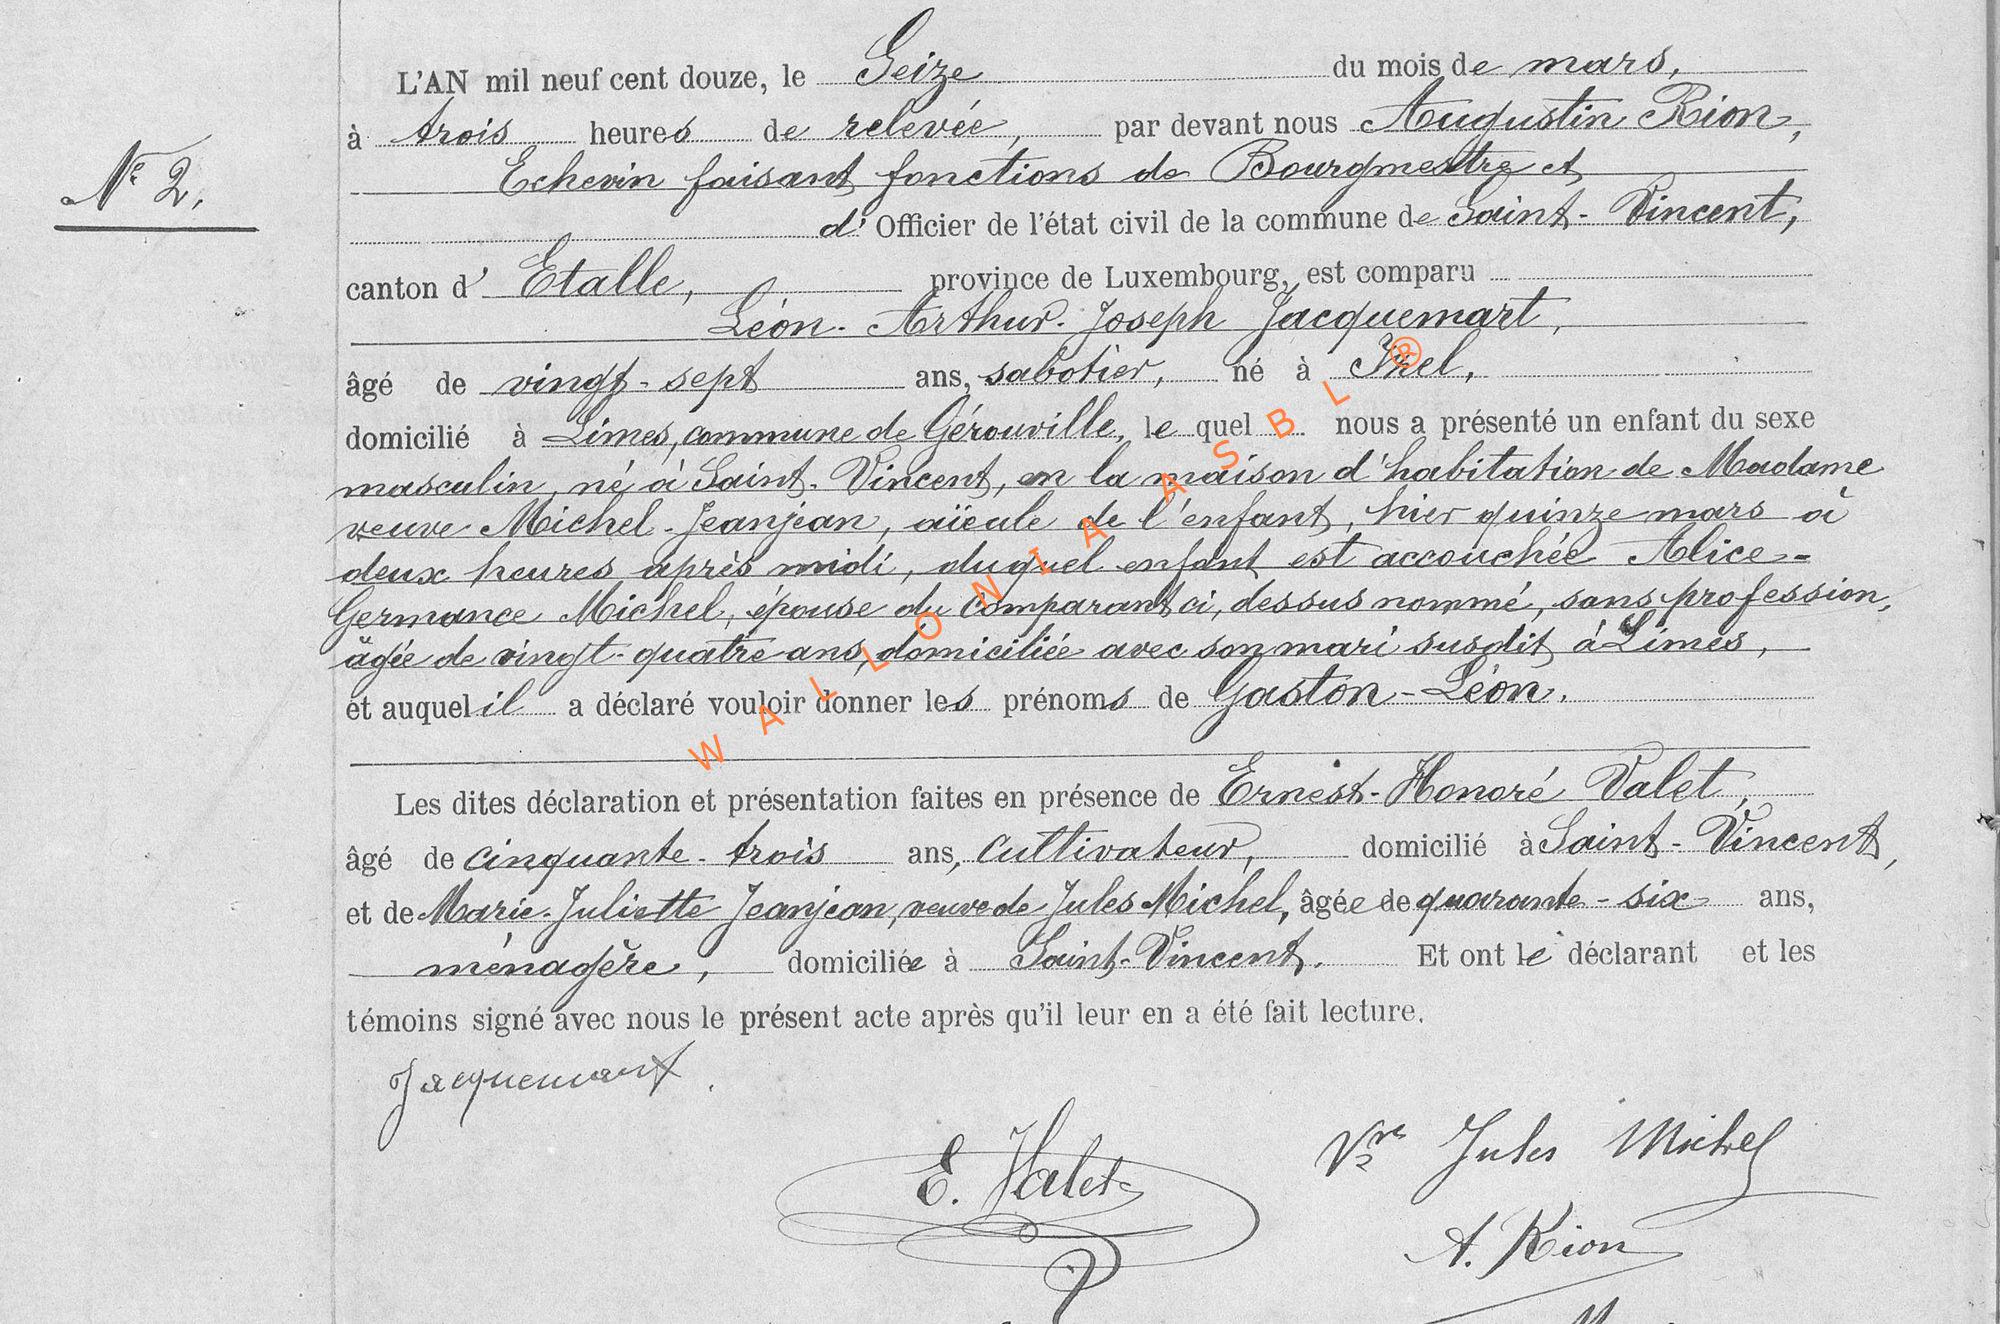 L'AN mil neuf cent douze, le Seize du mois de mars,
à trois heures de relevée, par devant nous Augustin Rion,
N° 2.
Echevin faisant fonctions de Bourgmestre et
d' Officier de l'état civil de la commune de Saint-Vincent,
canton d' Etalle, province de Luxembourg, est comparu
Léon-Arthur-Joseph Jacquemart,
âgé de vingt-sept ans, sabotier, né à
domicilié à Limes, commune de Gérouville, le quel nous a présenté un enfant du sexe
masculin, né à Saint-Vincent, en la maison d'habitation de Madame
veuve Michel-Jeanjean, aïeule de l'enfant, hier quinze mars à
deux heures après midi, duquel enfant est accouchée Alice-
Germance Michel, épouse du comparant ci, dessus nommé, sans profession,
âgée de vingt-quatre ans, domiciliée avec son mari susdit à Limes,
et auquel il a déclaré vouloir donner les prénoms de Gaston-Léon.
WALLONIA ASBL ®
Les dites déclaration et présentation faites en présence de Ernest-Honoré Valet,
âgé de cinquante-trois ans, cultivateur, domicilié à Saint-Vincent,
et de Marie-Juliette Jeanjean, veuve de Jules Michel, âgée de quarante-six ans,
ménagère, domiciliée à Saint-Vincent. Et ont le déclarant et les
témoins signé avec nous le présent acte après qu'il leur en a été fait lecture.
Jacquemart.
E. Valet
Vve Jules Michel
A. Rion